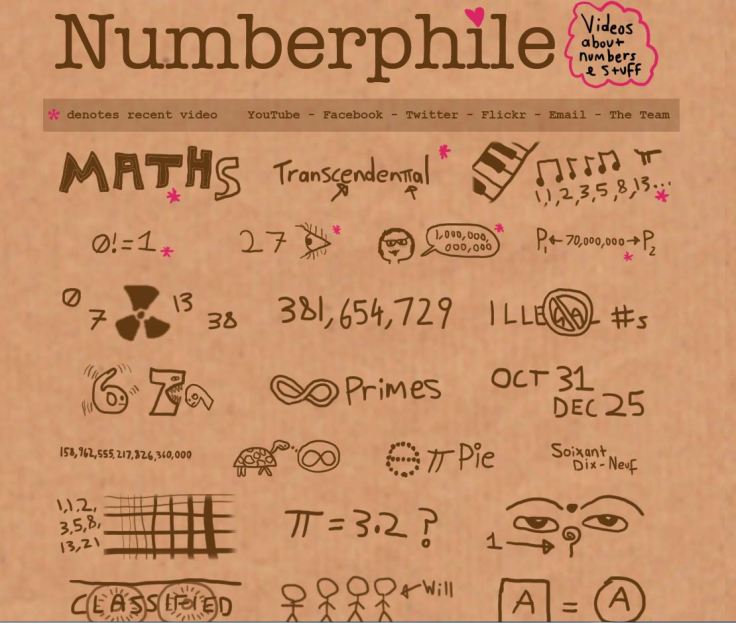 Numberphile
Videos
about
numbers
& stuff
* denotes recent video YouTube - Facebook - Twitter - Flickr - Email - The Team
MATHS *
Transcendenπal *
π
1,1,2,3,5,8,13... *
0!=1 *
27 *
1,000,000,
000,000 *
P1 ← 70,000,000 → P2 *
0 7 13 38
381,654,729
ILLEGAL #s
6 7 9
∞ Primes
OCT 31
DEC 25
158,962,555,217,826,360,000
∞
π Pie
Soixant
Dix-Neuf
1,1,2,
3,5,8,
13,21
π = 3.2 ?
1 →
CLASSIFIED
← Will
A = A